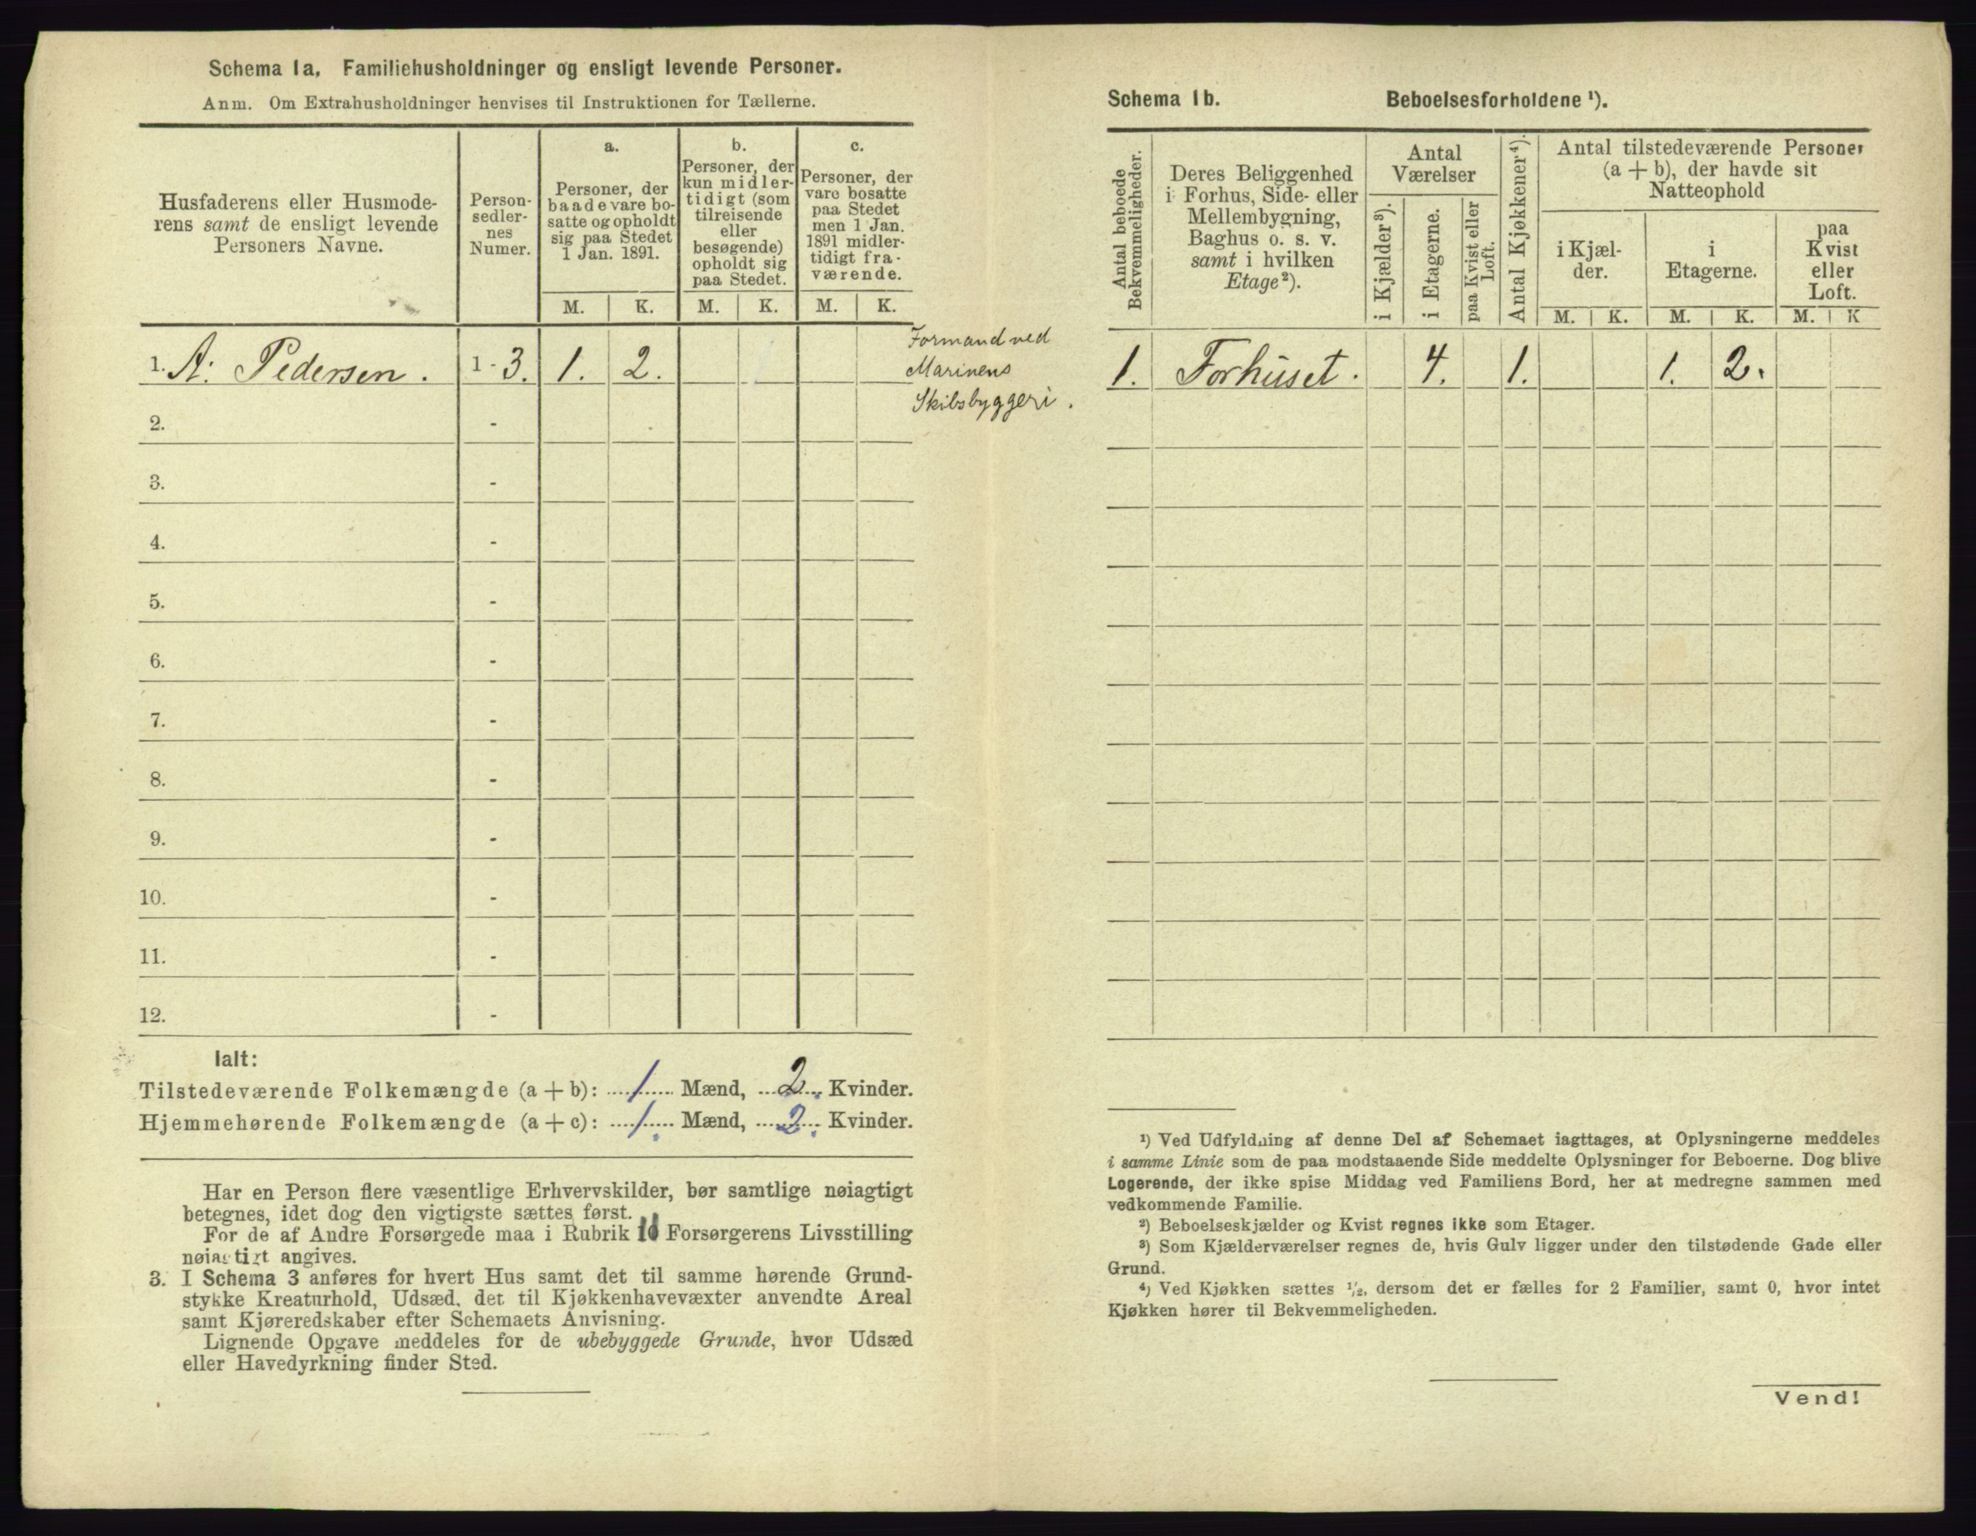 Schema 1a. Familiehusholdninger og ensligt levende Personer.
Anm. Om Extrahusholdninger henvises til Instruktionen for Tællerne.
Husfaderens eller Husmode-
rens samt de ensligt levende
Personers Navne.
Person-
sedler-
nes
Numer.
a.
Personer, der
baade vare bo-
satte og opholdt
sig paa Stedet
1 Jan. 1891.
b.
Personer, der
kun midler-
tidigt (som
tilreisende
eller
besøgende)
opholdt sig
paa Stedet.
c.
Personer, der
vare bosatte
paa Stedet
men 1 Jan.
1891 midler-
tidigt fra-
værende.
M. K. M. K. M. K.
1. A. Pedersen. 1 - 3. 1. 2.
Formand ved
Marinens
Skibsbyggeri.
2. -
3. -
4. -
5. -
6. -
7. -
8. -
9. -
10. -
11. -
12. -
Ialt:
Tilstedeværende Folkemængde (a + b): 1 Mænd, 2 Kvinder.
Hjemmehørende Folkemængde (a + c): 1. Mænd, 2. Kvinder.
Har en Person flere væsentlige Erhvervskilder, bør samtlige nøiagtigt
betegnes, idet dog den vigtigste sættes først.
For de af Andre Forsørgede maa i Rubrik 10 Forsørgerens Livsstilling
nøiagtigt angives.
3. I Schema 3 anføres for hvert Hus samt det til samme hørende Grund-
stykke Kreaturhold, Udsæd, det til Kjøkkenhavevæxter anvendte Areal
samt Kjøreredskaber efter Schemaets Anvisning.
Lignende Opgave meddeles for de ubebyggede Grunde, hvor Udsæd
eller Havedyrkning finder Sted.
Schema 1b. Beboelsesforholdene ¹).
Antal beboede
Bekvemmeligheder.
Deres Beliggenhed
i Forhus, Side- eller
Mellembygning,
Baghus o. s. v.
samt i hvilken
Etage ²).
Antal
Værelser
i Kjælder ³).
i Etagerne.
paa Kvist eller
Loft.
Antal Kjøkkener ⁴).
Antal tilstedeværende Personer
(a + b), der havde sit
Natteophold
i Kjæl-
der.
i
Etagerne.
paa
Kvist
eller
Loft.
M. K. M. K. M. K
1. Forhuset. 4. 1. 1. 2.
¹) Ved Udfyldning af denne Del af Schemaet iagttages, at Oplysningerne meddeles
i samme Linie som de paa modstaaende Side meddelte Oplysninger for Beboerne. Dog blive
Logerende, der ikke spise Middag ved Familiens Bord, her at medregne sammen med
vedkommende Familie.
²) Beboelseskjælder og Kvist regnes ikke som Etager.
³) Som Kjælderværelser regnes de, hvis Gulv ligger under den tilstødende Gade eller
Grund.
⁴) Ved Kjøkken sættes ½, dersom det er fælles for 2 Familier, samt 0, hvor intet
Kjøkken hører til Bekvemmeligheden.
Vend!